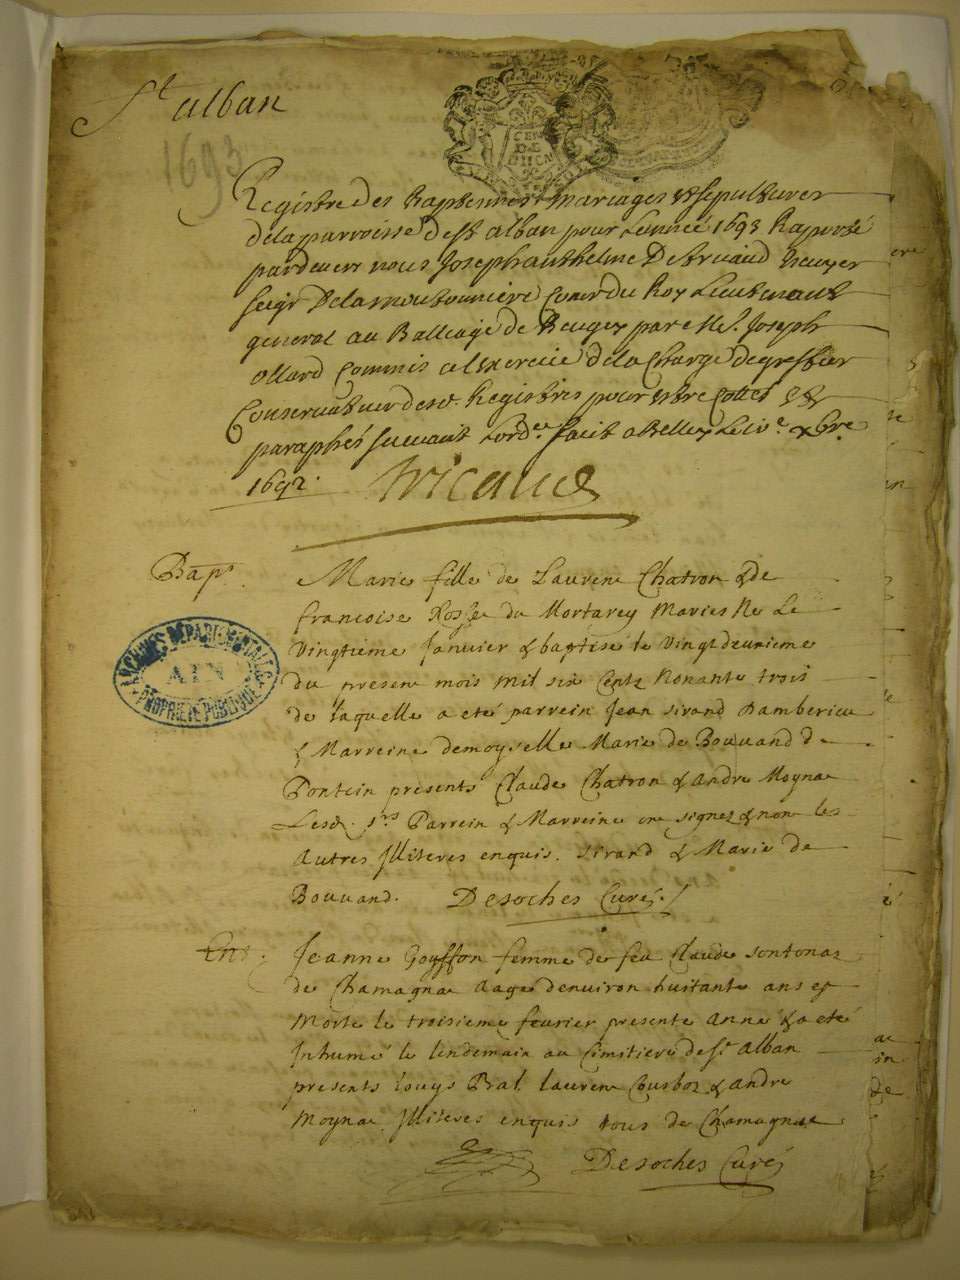 St alban
1693
Registre des Baptesmes mariages & sepultures
de la parroisse de St alban pour Lannée 1693 Raporté
pardevers nous Joseph anthelme Detricaud Escuyer
seigr Delamoutonniere Coner du Roy Lieutenant
general au Balliage de Beugey par Me. Joseph
ollard Commis a lexercice de la Charge de greffier
Conservateur desd. Registres pour estre Cottes &
paraphés suivant Lordce faict a Belley Le xbre.
1692.
Tricaud
Bap.
Marie fille de Lauren Chatron & de
francoise du Mortarey Mariés Né Le
Vingtieme Janvier & baptisé le Vingt deunieme
du presen mois mil six Centz Nonante trois
de laquelle a eté parrein Jean sirand Damberieu
& Marreine demoyselle Marie de Bouvand de
Pontein presents Claude Chatron & andre Moynae
Lesd. srs Parrein & Marreine on signez & non les
Autres Illiteres enquis. sirand & Marie de
Bouvand. Desoches Curé.
ARCHIVES DÉPARTEMENTALES
AIN
PROPRIÉTÉ PUBLIQUE
Ent.
Jeanne Goyffon femme de feu Claude sontonas
de Chamagnae aage denuiron huitante ans est
Morte le troisieme feurier presente Anné & a eté
Inhumé le lendemain au Cimitiere de St alban
presents louys Bral lauren Courboz & andre
Moynae Illiteres enquis tous de Chamagnae
Desoches Curé